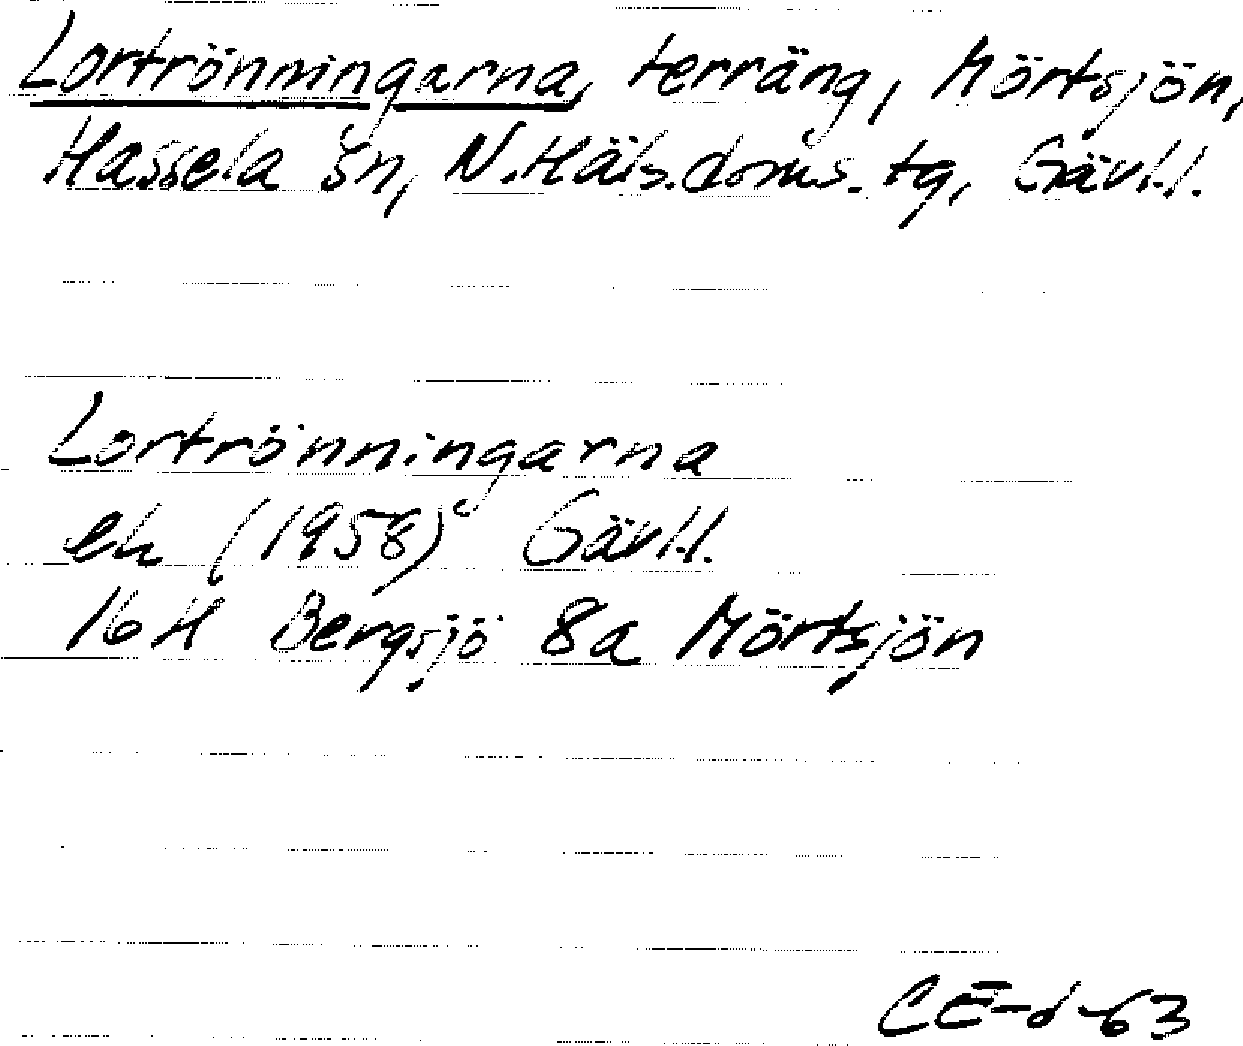 Lortrönningarna, terräng, Mörtsjön,
Hassela sn, N.Häls.doms.tg, Gävl.l.
Lortrönningarna
ek (1958) Gävl.l.
16H Bergsjö 8a Mörtsjön
CE-d-63